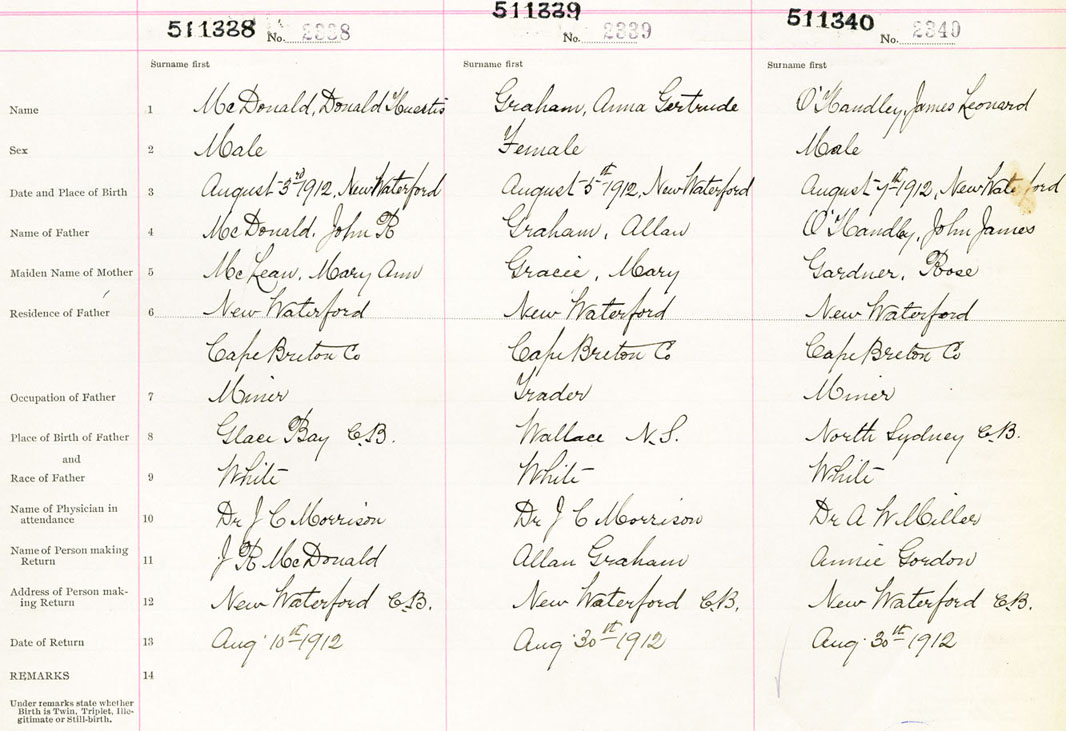 511338 No. 2338 511339 No. 2339 511340 No. 2340
Surname first Surname first Surname first
Name 1 McDonald, Donald Huestis Graham, Anna Gertrude O'Handley, James Leonard
Sex 2 Male Female Male
Date and Place of Birth 3 August 3rd 1912, New Waterford August 5th 1912, New Waterford August 7th 1912, New Waterford
Name of Father 4 McDonald, John R Graham, Allan O'Handley, John James
Maiden Name of Mother 5 McLean, Mary Ann Gracie, Mary Gardner, Rose
Residence of Father 6 New Waterford New Waterford New Waterford
Cape Breton Co Cape Breton Co Cape Breton Co
Occupation of Father 7 Miner Trader Miner
Place of Birth of Father 8 Glace Bay C.B. Wallace N.S. North Sydney C.B.
and
Race of Father 9 White White White
Name of Physician in
attendance 10 Dr J C Morrison Dr J C Morrison Dr A W Miller
Name of Person making
Return 11 J R McDonald Allan Graham Annie Gordon
Address of Person mak-
ing Return 12 New Waterford C.B. New Waterford C.B. New Waterford C.B.
Date of Return 13 Aug 10th 1912 Aug 30th 1912 Aug 30th 1912
REMARKS 14
Under remarks state whether
Birth is Twin, Triplet, Ille-
gitimate or Still-birth.